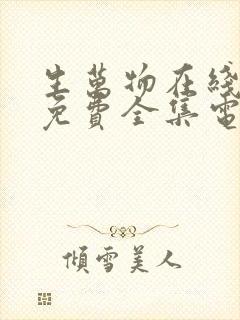 生萬物在綫
免費全集電
傾雪美人